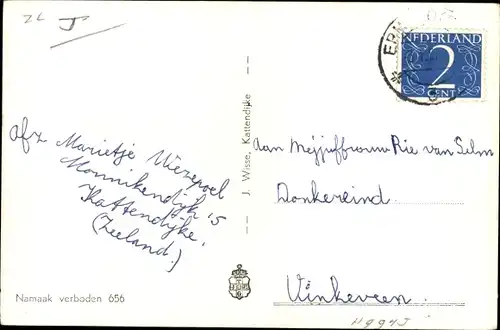 ZL J
NEDERLAND
2
CENT
afz Marietje Wiezepoel
Monnikendijk 15
Kattendijke,
(Zeeland.)
J. Wisse, Kattendijke
aan Mejjuffrouw Rie van Selm
Donkereind.
Vinkeveen.
Namaak verboden 656